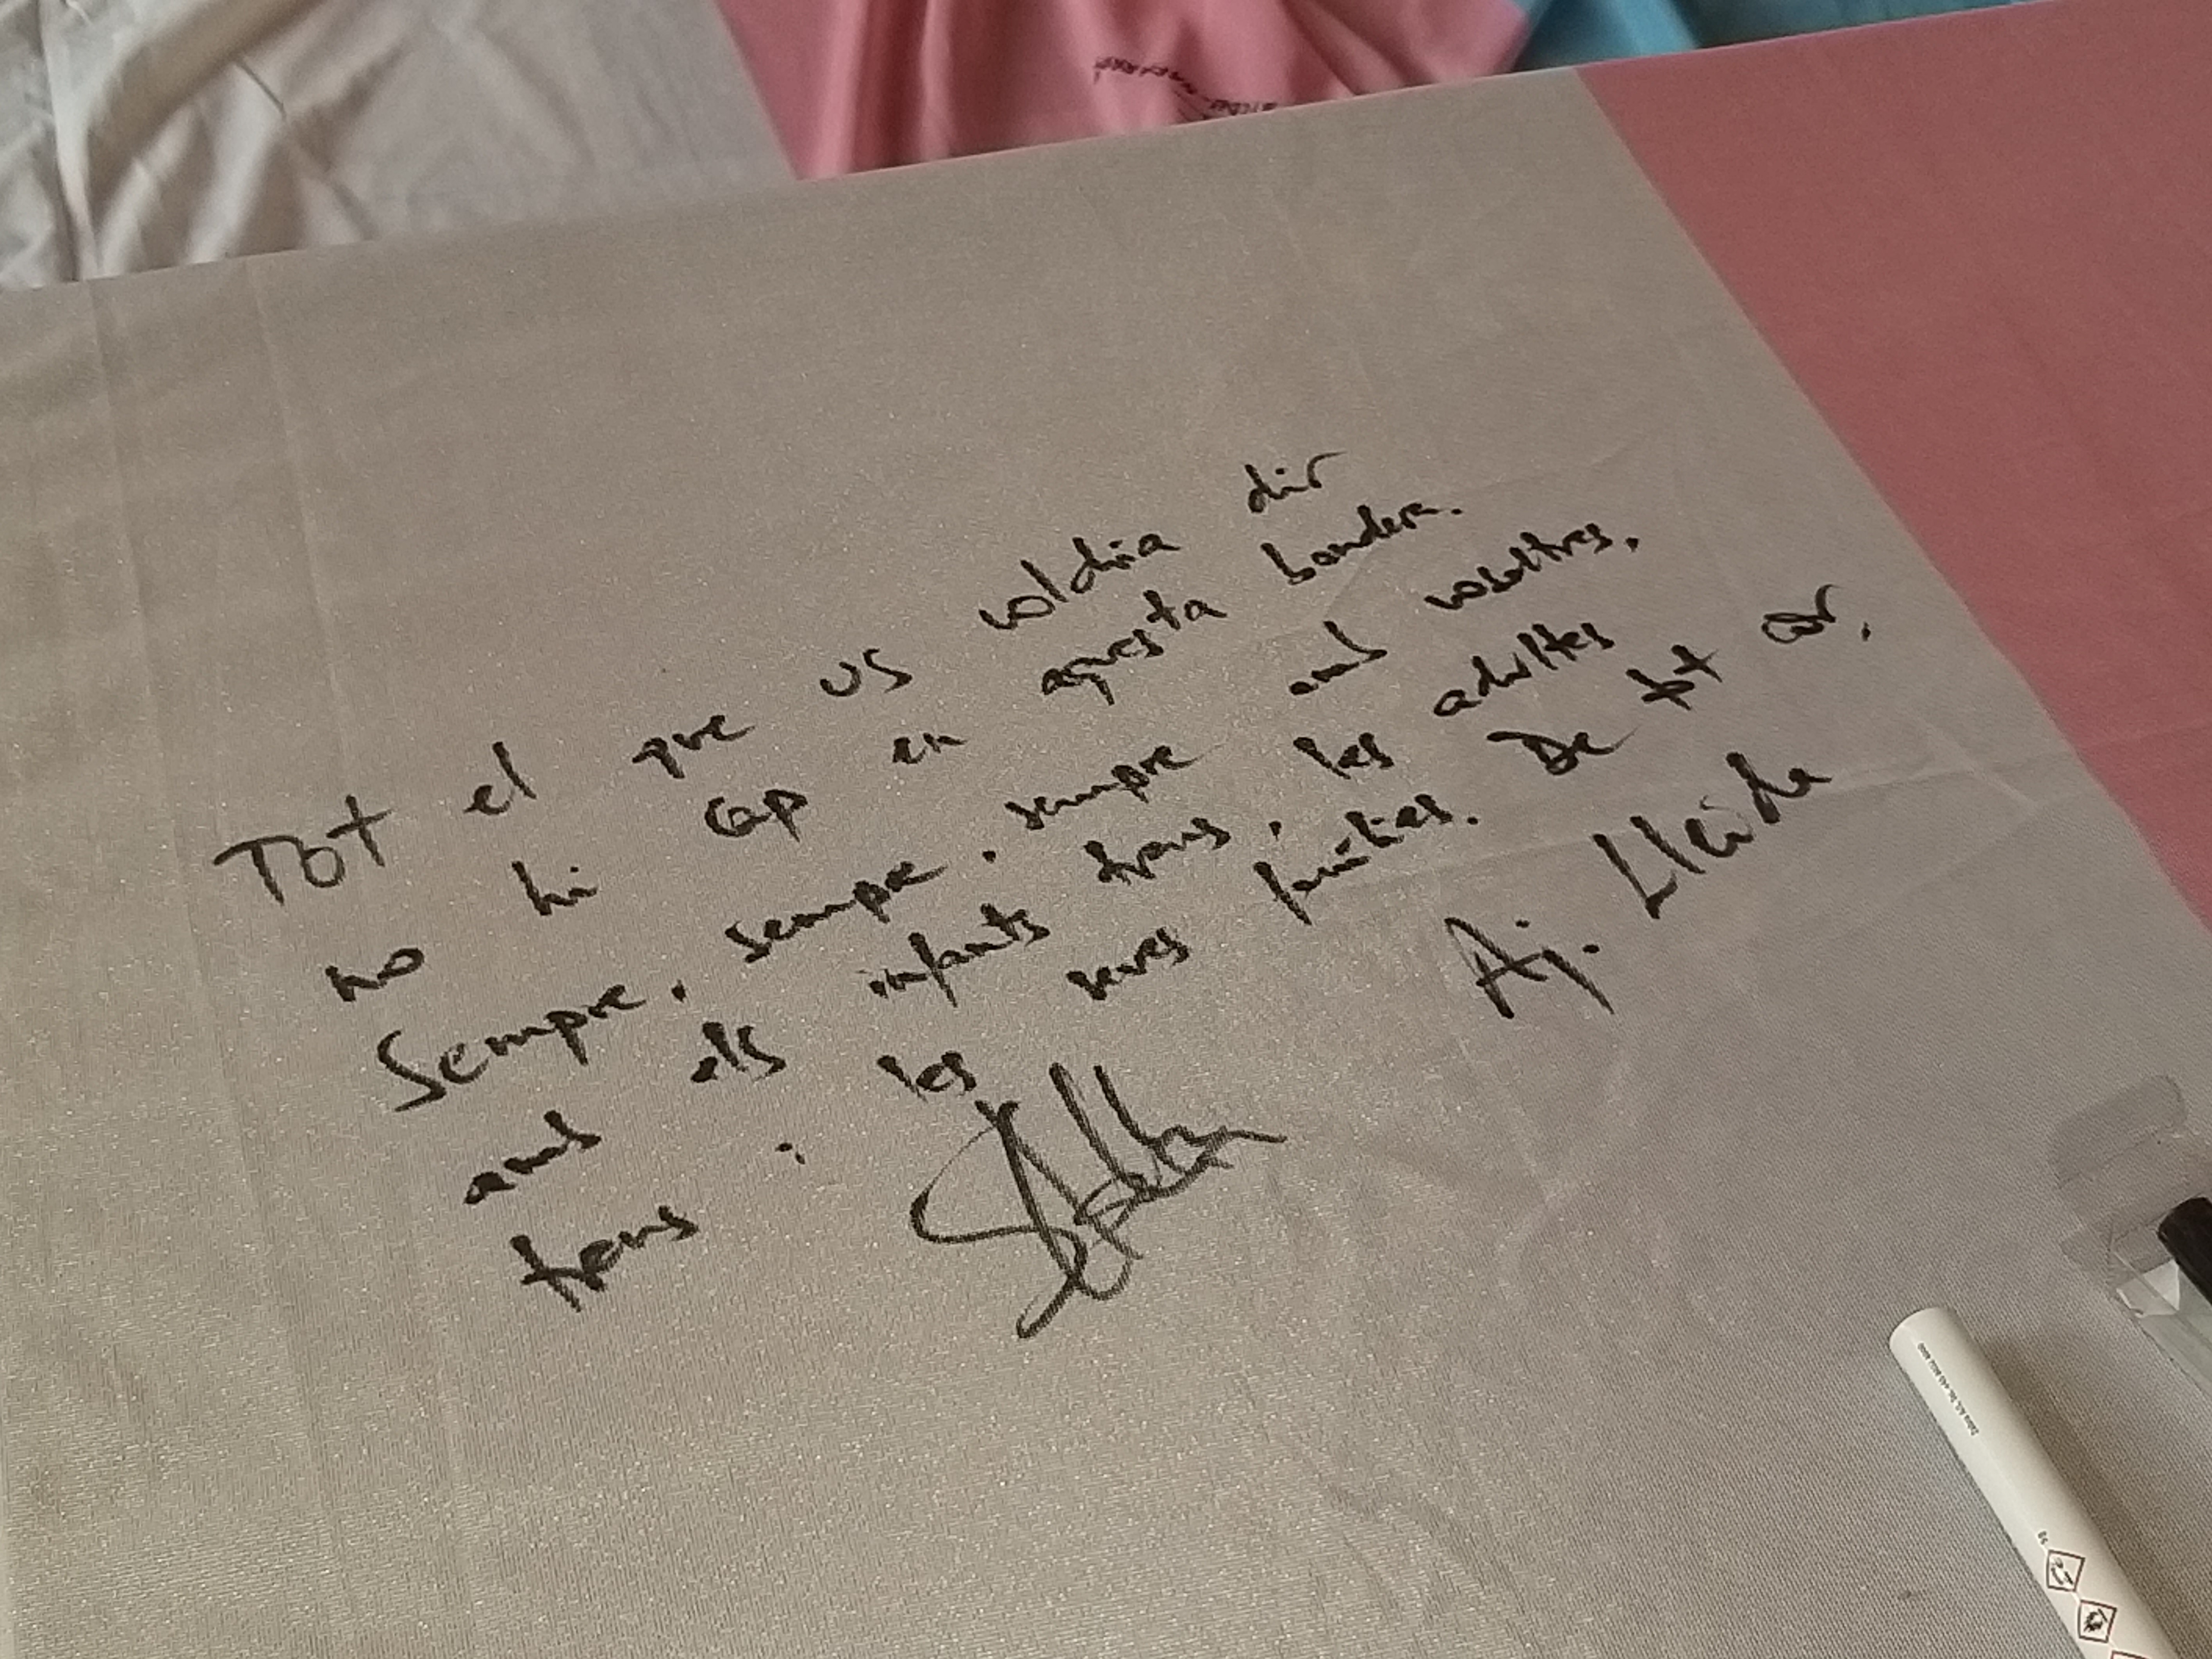 Tot el que us voldria dir
no hi cap en aquesta bandera.
Sempre, sempre, sempre amb vosaltres,
amb els infants trans, les adultes
trans i les seves famílies. De tot cor,
Aj. Lleida